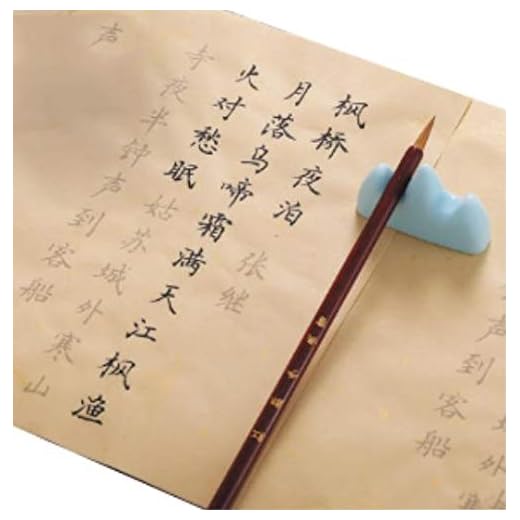 枫桥夜泊张继
月落乌啼霜满天江枫渔
火对愁眠姑苏城外寒山
寺夜半钟声到客船
声
城外寒
声到客船